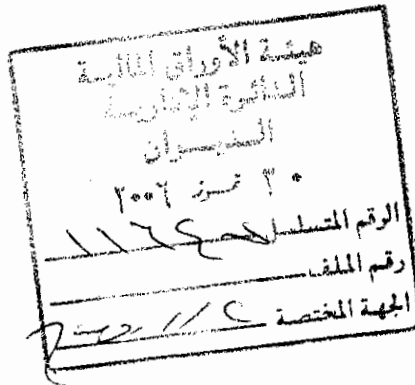 هيئة الأوراق المالية
الدائرة الإدارية
الديوان
٣٠ تموز ٢٠٠٦
الرقم المتسلسل
رقم الملف
الجهة المختصة